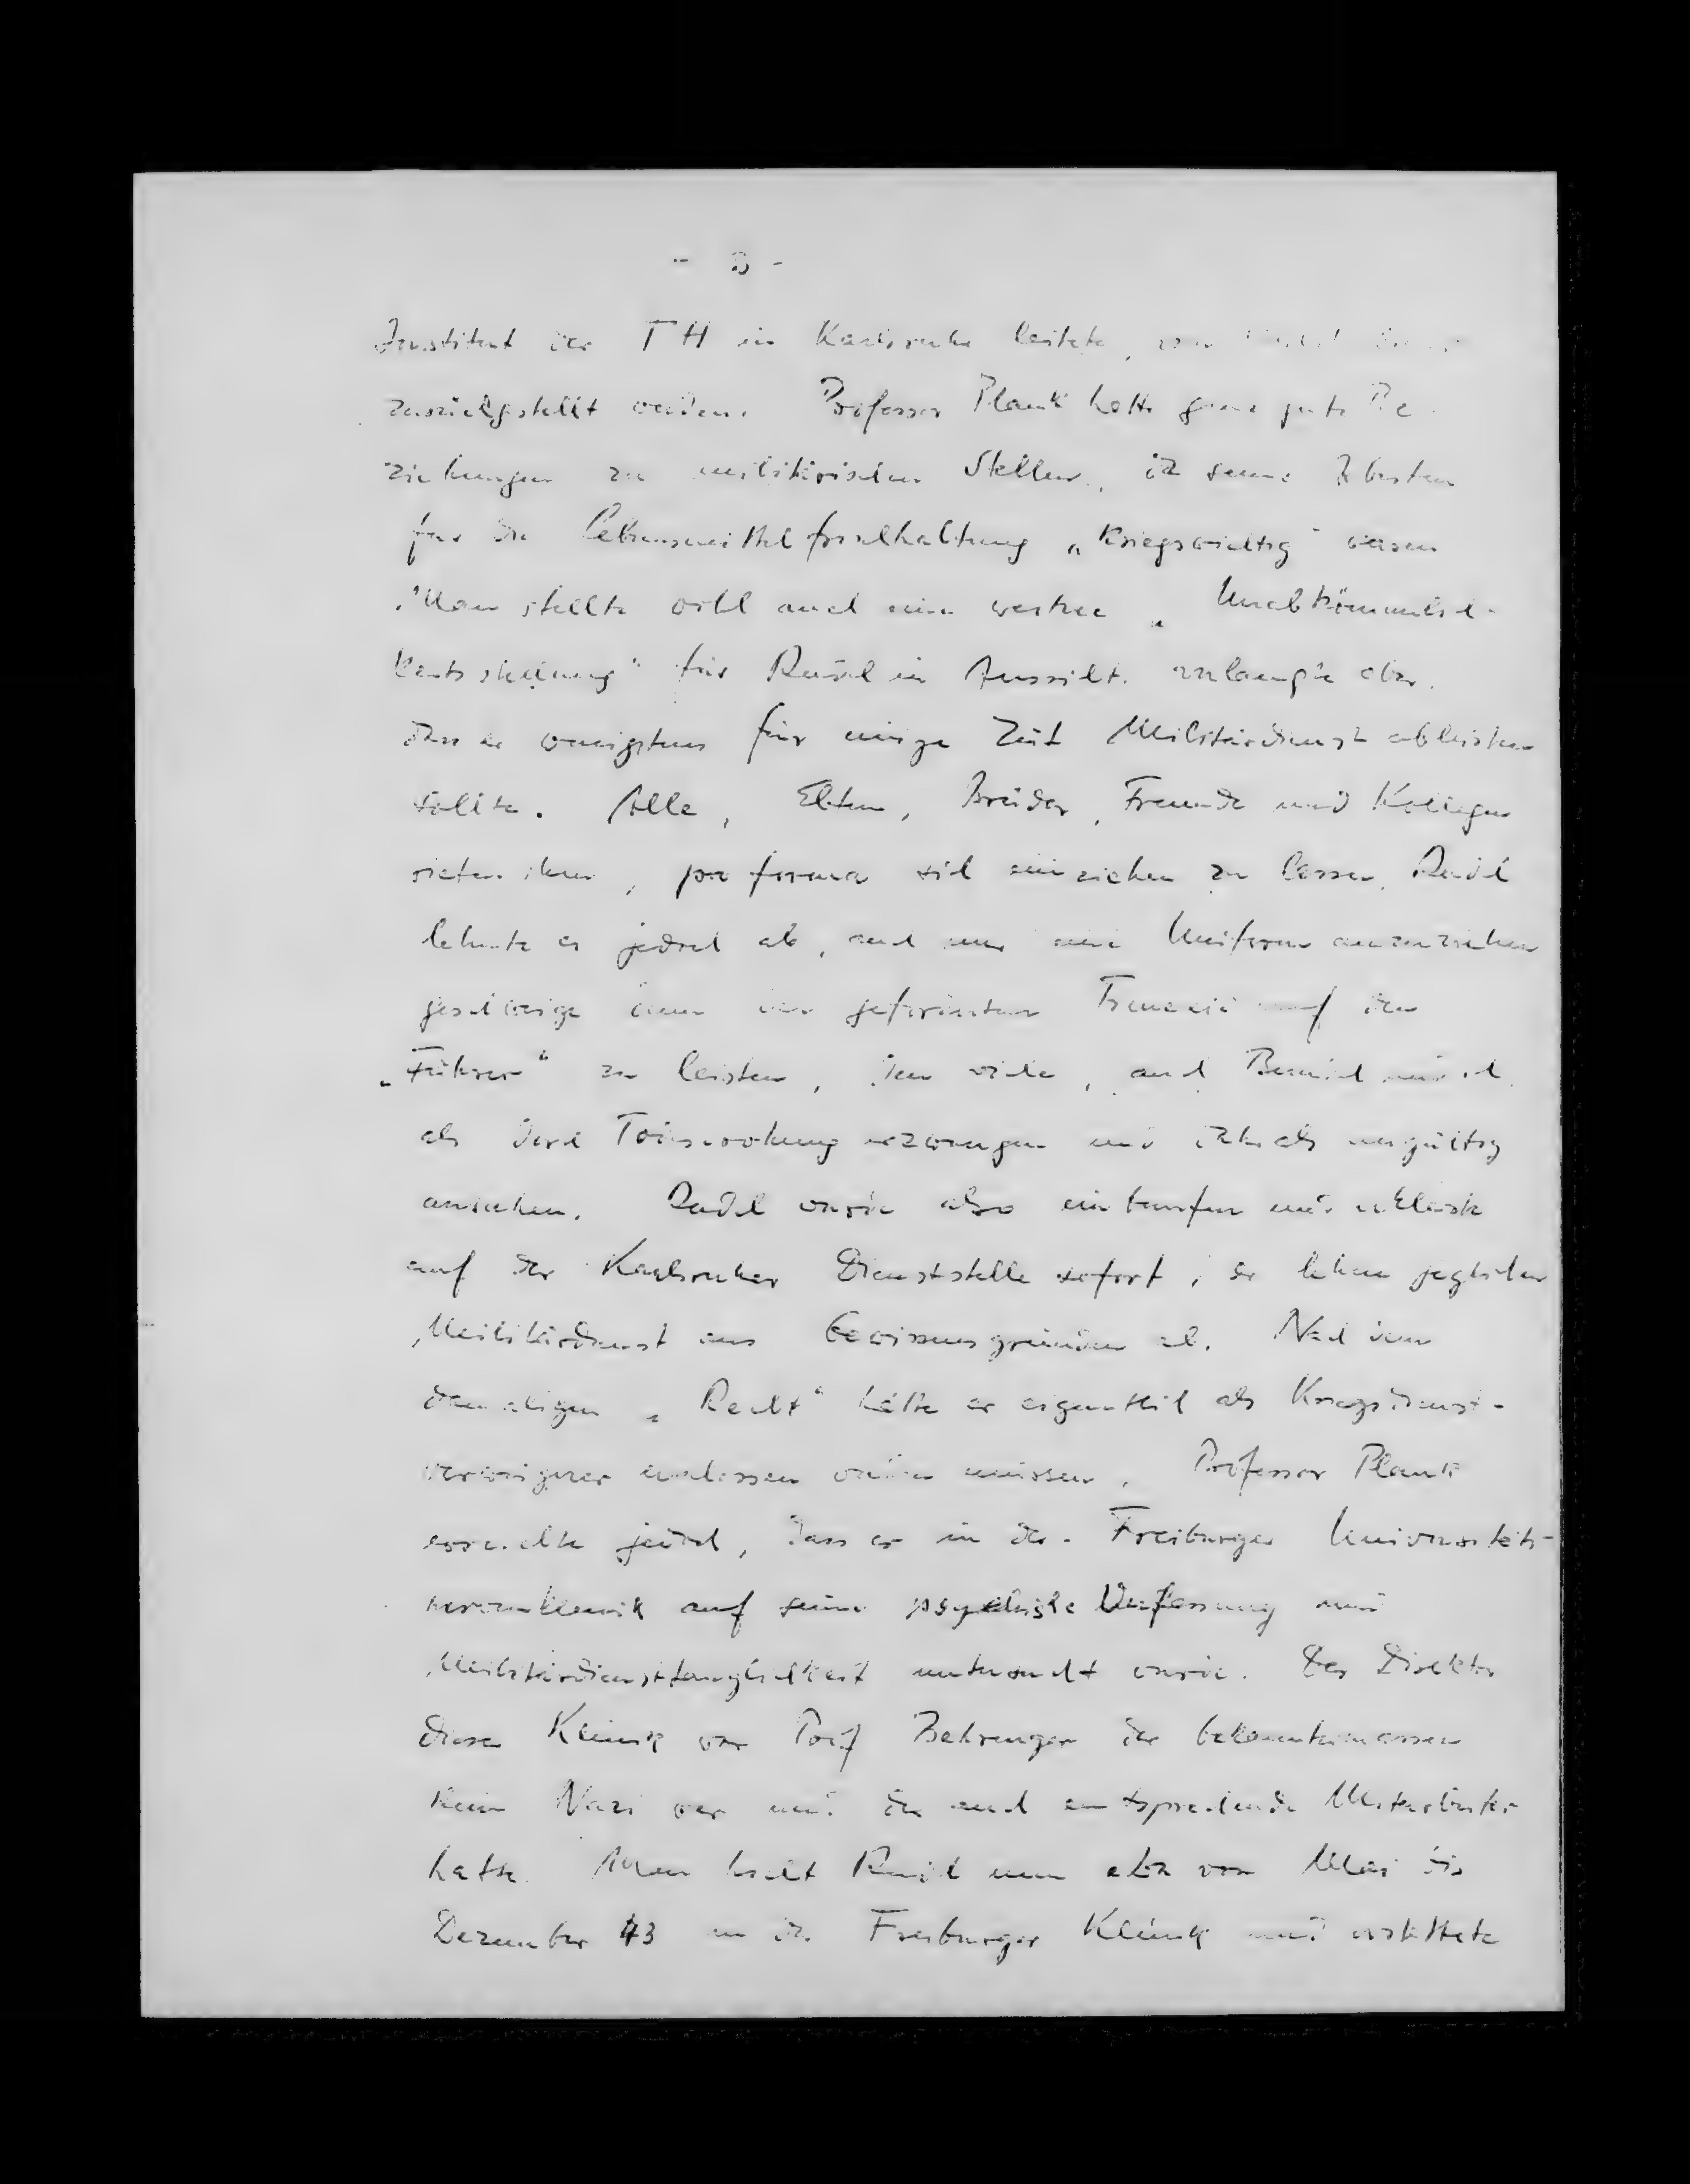 - 3 -
Institut der TH in Karlsruhe leitete,
zurückgestellt werden. Professor Plank hatte ganz gute Be
ziehungen zu militärischen Stellen, da seine Arbeiten
für die Lebensmittelfrischhaltung „kriegswichtig" waren
Man stellte wohl auch eine weitere „Unabkömmlich-
keitsstellung" für Reidel in Aussicht, verlangte aber,
dass er wenigstens für einige Zeit Militärdienst ableisten
sollte. Alle, Eltern, Brüder, Freunde und Kollegen
rieten ihm, pro forma sich einziehen zu lassen. Reidel
lehnte es jedoch ab, auch nur eine Uniform anzuziehen
geschweige denn den geforderten Treueeid auf den
„Führer" zu leisten, den viele, auch
als durch Todesdrohung erzwungen und daher als ungültig
ansahen. Reidel wurde also einberufen und erklärte
auf der Karlsruher Dienststelle sofort, er lehne jeglichen
Militärdienst aus Gewissensgründen ab. Nach dem
damaligen „Recht" hätte er eigentlich als Kriegsdienst-
verweigerer erschossen werden müssen. Professor Plank
erreichte jedoch, dass er in der Freiburger Universitäts-
nervenklinik auf seine psychische Verfassung und
Militärdiensttauglichkeit untersucht wurde. Der Direktor
dieser Klinik war Prof Behringer der bekanntermassen
kein Nazi war und der auch entsprechende Mitarbeiter
hatte. Man hielt Reidel nun etwa von Mai bis
Dezember 43 in der Freiburger Klinik und erstattete